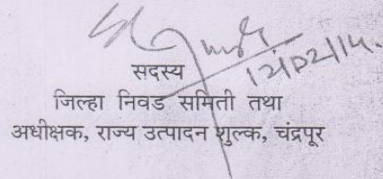 12/02/14.
सदस्य
जिल्हा निवड समिती तथा
अधीक्षक, राज्य उत्पादन शुल्क, चंद्रपूर